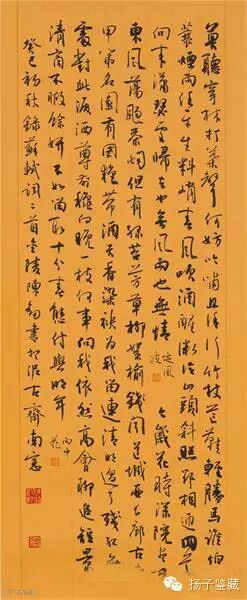 莫聽穿林打葉聲何妨吟嘯且徐行竹杖芒鞋輕勝馬誰怕一
蓑煙雨任平生料峭春風吹酒醒微冷山頭斜照却相迎回首
向來蕭瑟處歸去也無風雨也無情 定風波 今歲花時深院盡日
東風蕩颺茶煙但有綠苔芳草柳絮榆錢聞道城西長廊古寺
甲第名園有國艷帶酒天香染袂為我留連清明過了殘紅無
處對此淚灑尊前秋向晚一枝何事向我依然高會聊追短景
清商不暇餘妍不如留取十分春態付與明年 雨中花
癸巳初秋錄蘇軾詞二首金陵陳書於古齋南窗
扬子鉴藏